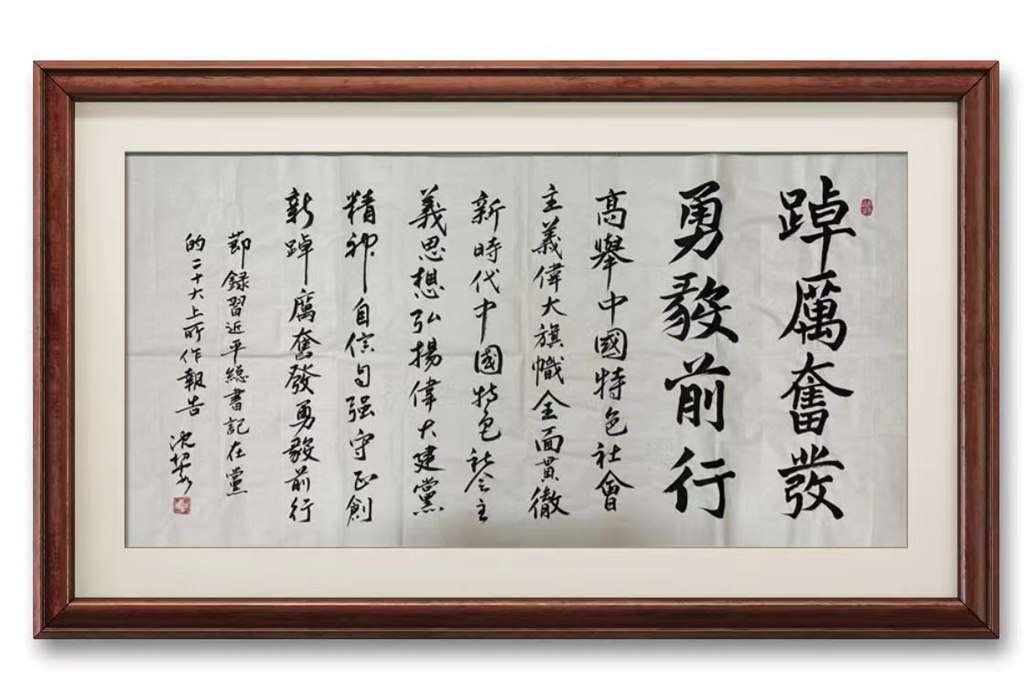 踔厲奮發
勇毅前行
高舉中國特色社會
主義偉大旗幟全面貫徹
新時代中國特色社会主
義思想弘揚偉大建黨
精神自信自强守正創
新踔厲奮發勇毅前行
節録習近平総書記在黨
的二十大上所作報告
沈